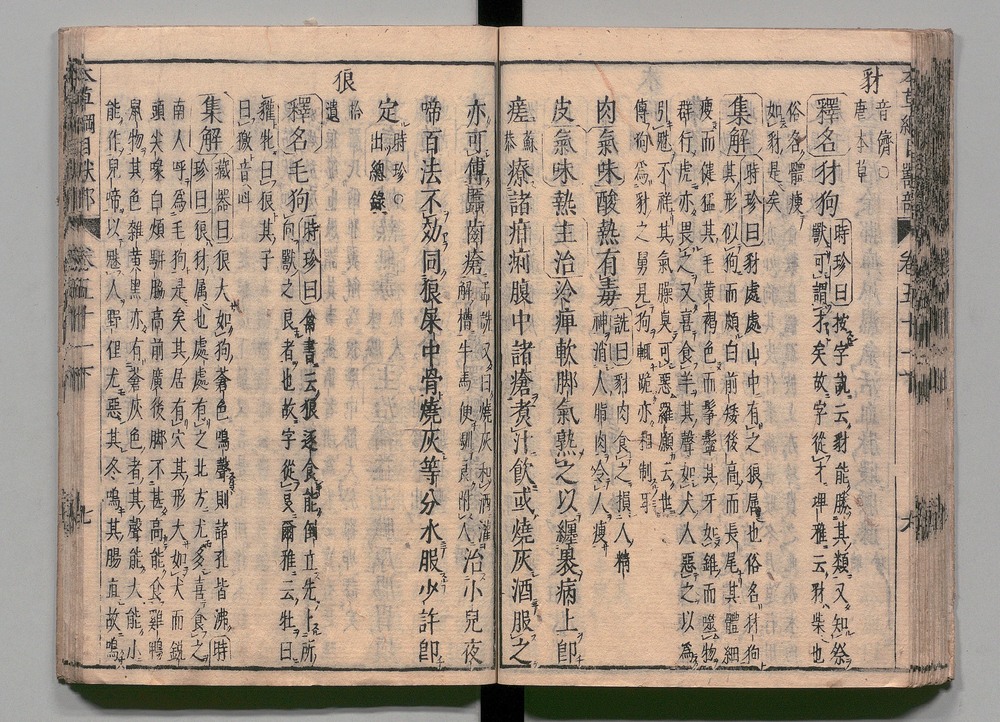 豺
音儕○
唐本草
釋名 豺狗 時珍曰按字說云豺能勝其類又知祭
獸可謂才矣故字從才埤雅云豺柴也
俗名體瘦
如豺是矣
集解 時珍曰豺處處山中有之狼屬也俗名豺狗
其形似狗而頗白前矮後高而長尾其體細
瘦而健猛其毛黃褐色而鬇鬡其牙如錐而噬物
群行虎亦畏之又喜食羊其聲如犬人惡之以為
引魅不祥其氣臊臭可惡羅願云世
傳狗為豺之舅見狗輒跪亦相制耳
肉氣味酸熱有毒 詵曰豺肉食之損人精
神消人脂肉令人瘦
皮氣味熱主治冷痺軟脚氣熟之以纏裹病上即
瘥 蘇恭 療諸疳痢腹中諸瘡煮汁飲或燒灰酒服之
亦可傅䘌齒瘡 孟詵 又曰燒灰和酒灌
解槽牛馬便馴良附人 治小兒夜
啼百法不効同狼屎中骨燒灰等分水服少許即
定 時珍○
出總錄
狼
拾
遺
釋名 毛狗 時珍曰禽書云狼逐食能倒立先卜所
向獸之良者也故字從良爾雅云牡曰
獾牝曰狼其子
曰獥音叫
集解 藏器曰狼大如狗蒼色鳴聲則諸孔皆沸 時
珍曰狼豺属也處處有之北方尤多喜食之
南人呼為毛狗是矣其居有穴其形大如犬而銳
頭尖喙白頰駢脇高前廣後脚不甚高能食雞鴨
鼠物其色雜黃黑亦有蒼灰色者其聲能大能小
能作兒啼以魅人野俚尤惡其冬鳴其腸直故鳴